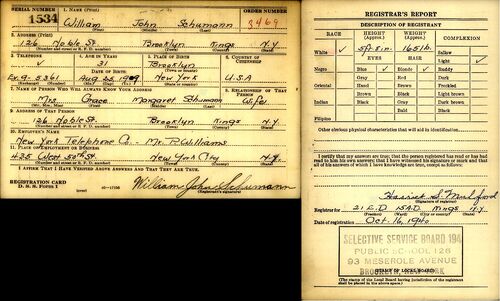 SERIAL NUMBER 1. NAME (Print) ORDER NUMBER
1534 William John Schumann 3469
2. ADDRESS (Print)
126 Noble St. Brooklyn Kings N.Y.
3. TELEPHONE 4. AGE IN YEARS 5. PLACE OF BIRTH 6. COUNTRY OF CITIZENSHIP
31 Brooklyn
DATE OF BIRTH
Ev. 9-5361 Aug 25 1909 New York U.S.A
7. NAME OF PERSON WHO WILL ALWAYS KNOW YOUR ADDRESS 8. RELATIONSHIP OF THAT PERSON
Mrs. Grace Margaret Schumann Wife
9. ADDRESS OF THAT PERSON
126 Noble St. Brooklyn Kings N.Y.
10. EMPLOYER'S NAME
New York Telephone Co. - Mr. P. Williams
11. PLACE OF EMPLOYMENT OR BUSINESS
425 West 50th St. New York City N.Y.
I AFFIRM THAT I HAVE VERIFIED ABOVE ANSWERS AND THAT THEY ARE TRUE.
REGISTRATION CARD
D. S. S. FORM 1
William John Schumann
(Registrant's signature)
REGISTRAR'S REPORT
DESCRIPTION OF REGISTRANT
RACE HEIGHT (Approx.) WEIGHT (Approx.) COMPLEXION
White 5ft. 8in. 165 lb. Sallow
EYES HAIR Light
Negro Blue Blonde Ruddy
Gray Red Dark
Oriental Hazel Brown Freckled
Brown Black Light brown
Indian Black Gray Dark brown
Bald Black
Filipino
Other obvious physical characteristics that will aid in identification
I certify that my answers are true; that the person registered has read or has had read to him his own answers; that I have witnessed his signature or mark and that all of his answers of which I have knowledge are true, except as follows:
(Signature of registrar)
Registrar for 21 E.D 15 A.D Kings N.Y.
(Precinct) (Ward) (City or county) (State)
Date of registration Oct. 16, 1940
SELECTIVE SERVICE BOARD 194
PUBLIC SCHOOL 126
93 MESEROLE AVENUE
BROOKLYN, NEW YORK
(STAMP OF LOCAL BOARD)
(The stamp of the Local Board having jurisdiction of the registrant shall be placed in the above space.)